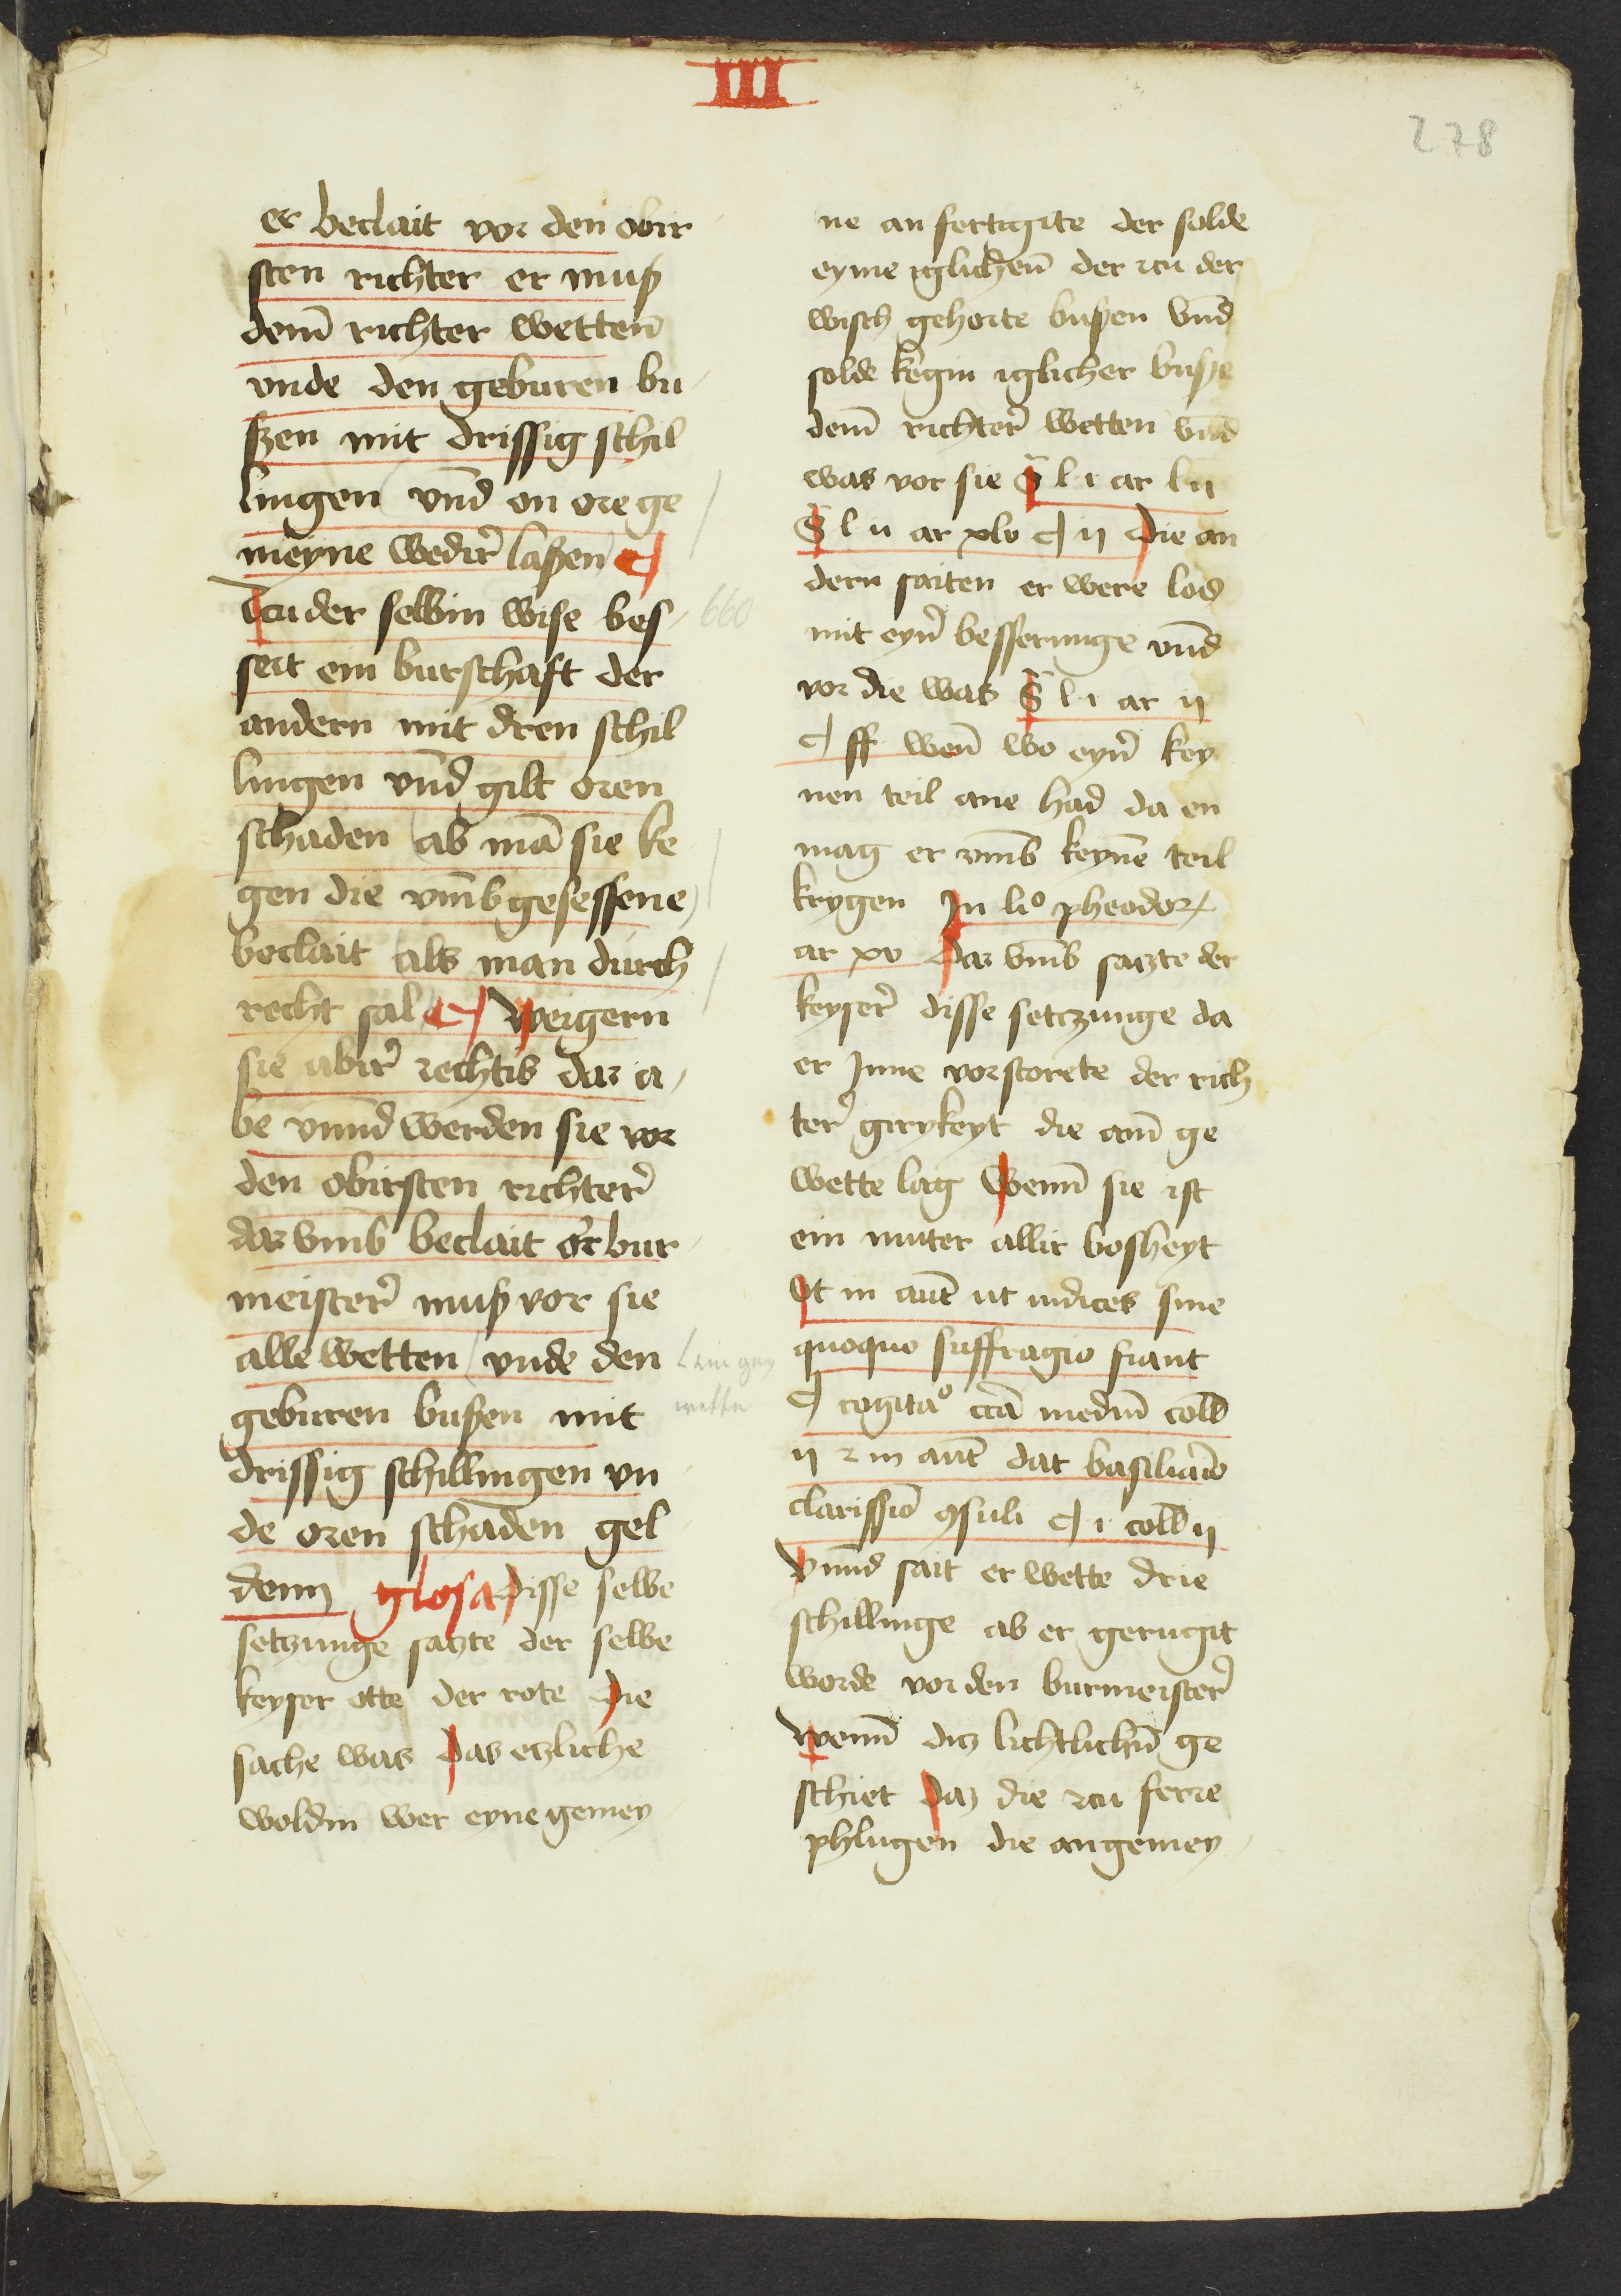 III
278
er beclait vor den obir
sten richter er muß
dem̄ richter wetten̄
vnde den geburen bu
ßzen mit drissig schil
lingen vnd̄ on ore ge
meyne wedir̛ laßen ¶
Tcu der selbin wise bes
sert ein burschaft der
andern mit dren schil
lingen vnd̄ gilt oren
schaden ab mā sie ke
gen die vm̄b gesessene
beclait als man durch
recht sal ¶ Weigern
sie abir̛ rechtis dar a
be vnnd̄ werden sie vor
den obirsten richter̛
dar vm̄b beclait or̛ bur
meister̛ muß vor sie
alle wetten vnde den
geburen bußen mit
drissig schillingen vn
de oren schaden gel
denn glosa Disse selbe
setzunge satzte der selbe
keyser otte der rote Die
sache was Das etzliche
woldin wer eyne gemey
660
ne an fertigite der solde
eyme iglichen̄ der zcu der
wisch gehorte bußen vnd̄
solde kegin iglicher buße
dem̄ richter̛ wetten vnd̄
was vor sie S̄ l i ar l ii
S̄ l ii ar xlv ¶ ii Die an
dern saiten er were los
mit eyn̛ besserunge vnd̄
vor die was S̄ l i ar ii
¶ ff wen̄ wo eyn̛ key
nen teil ane had da en
mag er vm̄b keynē teil
krygen In liº pheodor
ar xv Dar vm̄b satzte der
keyser̛ disse setczunge da
er Inne vorstorete der rich
ter̛ girykeyt die am̄ ge
wette lag Wenn̄ sie ist
ein muter allir bosheyt
Vt in aut̄ ut iudices sine
quoquo suffragio fiant
¶ cogitāº ccā mediū coll̄
ii z in aut̄ dat basilianō
clarissīo ꝯsuli ¶ i coll̄ ii
Vnnd̄ sait er wette drie
schillinge ab er gerugit
worde vor den burmeister̛
Wenn̄ ditz lichtlichin̄ ge
schiet Daz die zcu ferre
phlugen die an gemey